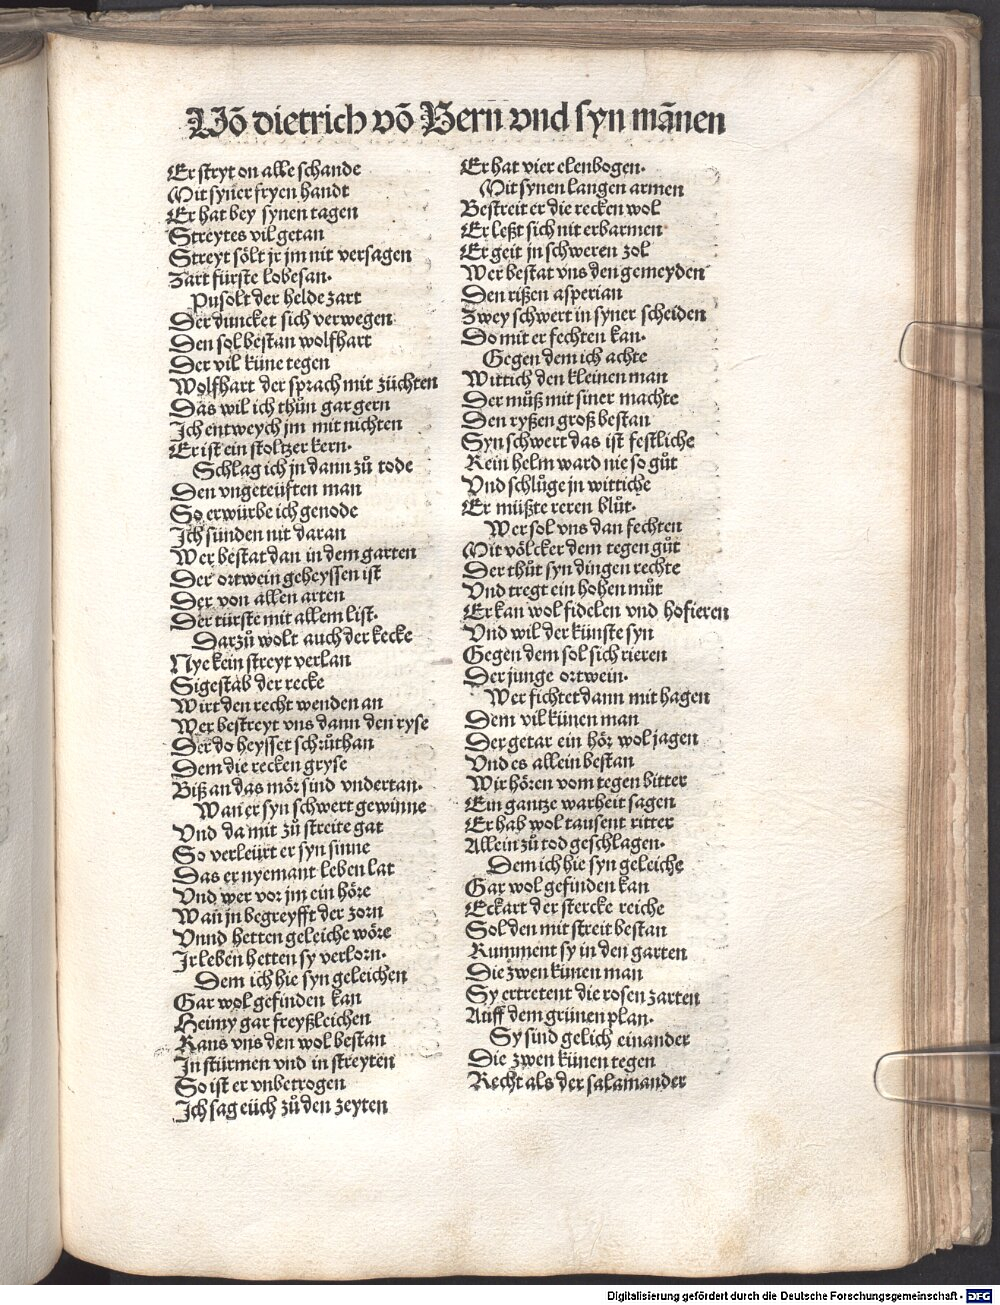 Uõ dietrich võ Bern vnd syn mãnen
Er stryt on alle schande
Mit syner fryen handt
Er hat bey synen tagen
Streytes vil getan
Streyt sölt jr jm nit versagen
Zart fürste lobesan.
Pusolt der helde zart
Der duncket sich verwegen
Den sol bestan wolfhart
Der vil küne tegen
Wolfhart der sprach mit züchten
Das wil ich thůn gar gern
Ich entweych jm mit nichten
Er ist ein stoltzer kern.
Schlag ich jn dann zů tode
Den vngeteüften man
So erwürbe ich genode
Ich sünden nit daran
Wer bestat dan in dem garten
Der ortwein geheyssen ist
Der von allen arten
Der türste mit allem list.
Darzů wolt auch der kecke
Nye kein streyt verlan
Sigestab der recke
Wirt den recht wenden an
Wer bestreyt vns dann den ryse
Der do heysset schrůthan
Dem die recken gryse
Biß an das mör sind vndertan.
Wan er syn schwert gewinne
Vnd da mit zů streite gat
So verleürt er syn sinne
Das er nyemant leben lat
Vnd wer vor jm ein höre
Wañ jn begreyfft der zorn
Vnnd hetten geleiche wöre
Ir leben hetten sy verlorn.
Dem ich hie syn geleichen
Gar wol gefinden kan
Heimy gar freyßleichen
Kans vns den wol bestan
In stürmen vnd in streyten
So ist er vnbetrogen
Ich sag eüch zů den zeyten
Er hat vier elenbogen.
Mit synen langen armen
Bestreit er die recken wol
Er leßt sich nit erbarmen
Er geit jn schweren zol
Wer bestat vns den gemeyden
Den rißen asperian
Zwey schwert in syner scheiden
Do mit er fechten kan.
Gegen dem ich achte
Wittich den kleinen man
Der můß mit siner machte
Den ryßen groß bestan
Syn schwert das ist festliche
Kein helm ward nie so gůt
Vnd schlůge jn wittiche
Er müßte reren blůt.
Wer sol vns dan fechten
Mit völcker dem tegen gůt
Der thůt syn dingen rechte
Vnd tregt ein hohen můt
Er kan wol fidelen vnd hofieren
Vnd wil der künste syn
Gegen dem sol sich rieren
Der junge ortwein.
Wer fichtet dann mit hagen
Dem vil künen man
Der getar ein hör wol jagen
Vnd es allein bestan
Wir hören vom tegen bitter
Ein gantze warheit sagen
Er hab wol tausent ritter
Allein zů tod geschlagen.
Dem ich hie syn geleiche
Gar wol gefinden kan
Eckart der stercke reiche
Sol den mit streit bestan
Kumment sy in den garten
Die zwen künen man
Sy ertretent die rosen zarten
Auff dem grünen plan.
Sy sind gelich einander
Die zwen künen tegen
Recht als der salamander
Digitalisierung gefördert durch die Deutsche Forschungsgemeinschaft - DFG